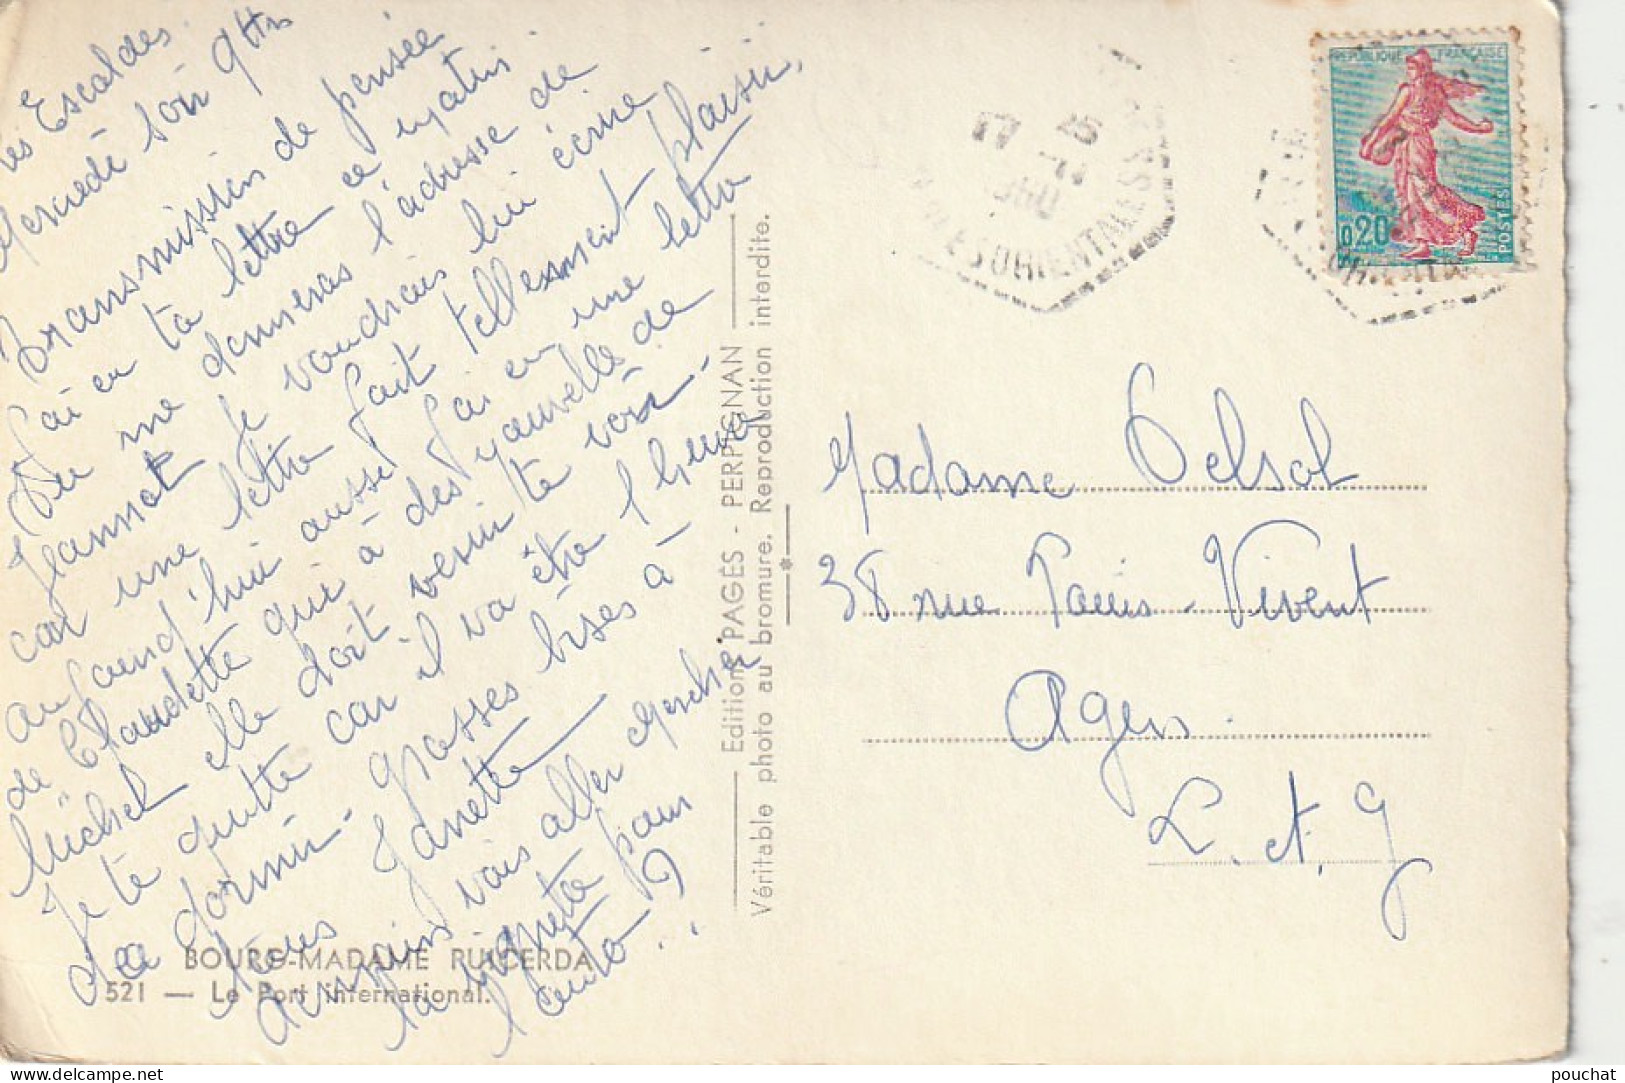 Les Escaldes.
Mercredi soir 9Hrs
Transmission de pensée
j'ai eu ta lettre ce matin
Tu me donneras l'adresse de
Jeannot je voudrais lui écrire
car une lettre fait tellement plaisir,
aujourd'hui aussi j'ai eu une lettre
de Claudette qui a des nouvelles de
Michel elle doit venir te voir.
Je te quitte car il va être l'heure
de dormir. grosses bises à
Janette
vais aller chercher
la vignette pour
l'auto ..?
BOURG-MADAME PUICERDA
521 — Le Port international.
Editions PAGÈS - PERPIGNAN
Véritable photo au bromure. Reproduction interdite.
REPUBLIQUE FRANÇAISE
0,20
POSTES
17 15
ORIENTALES
Madame Delsol
38 rue Louis-Vivent
Agen.
L. et. G
pouchat